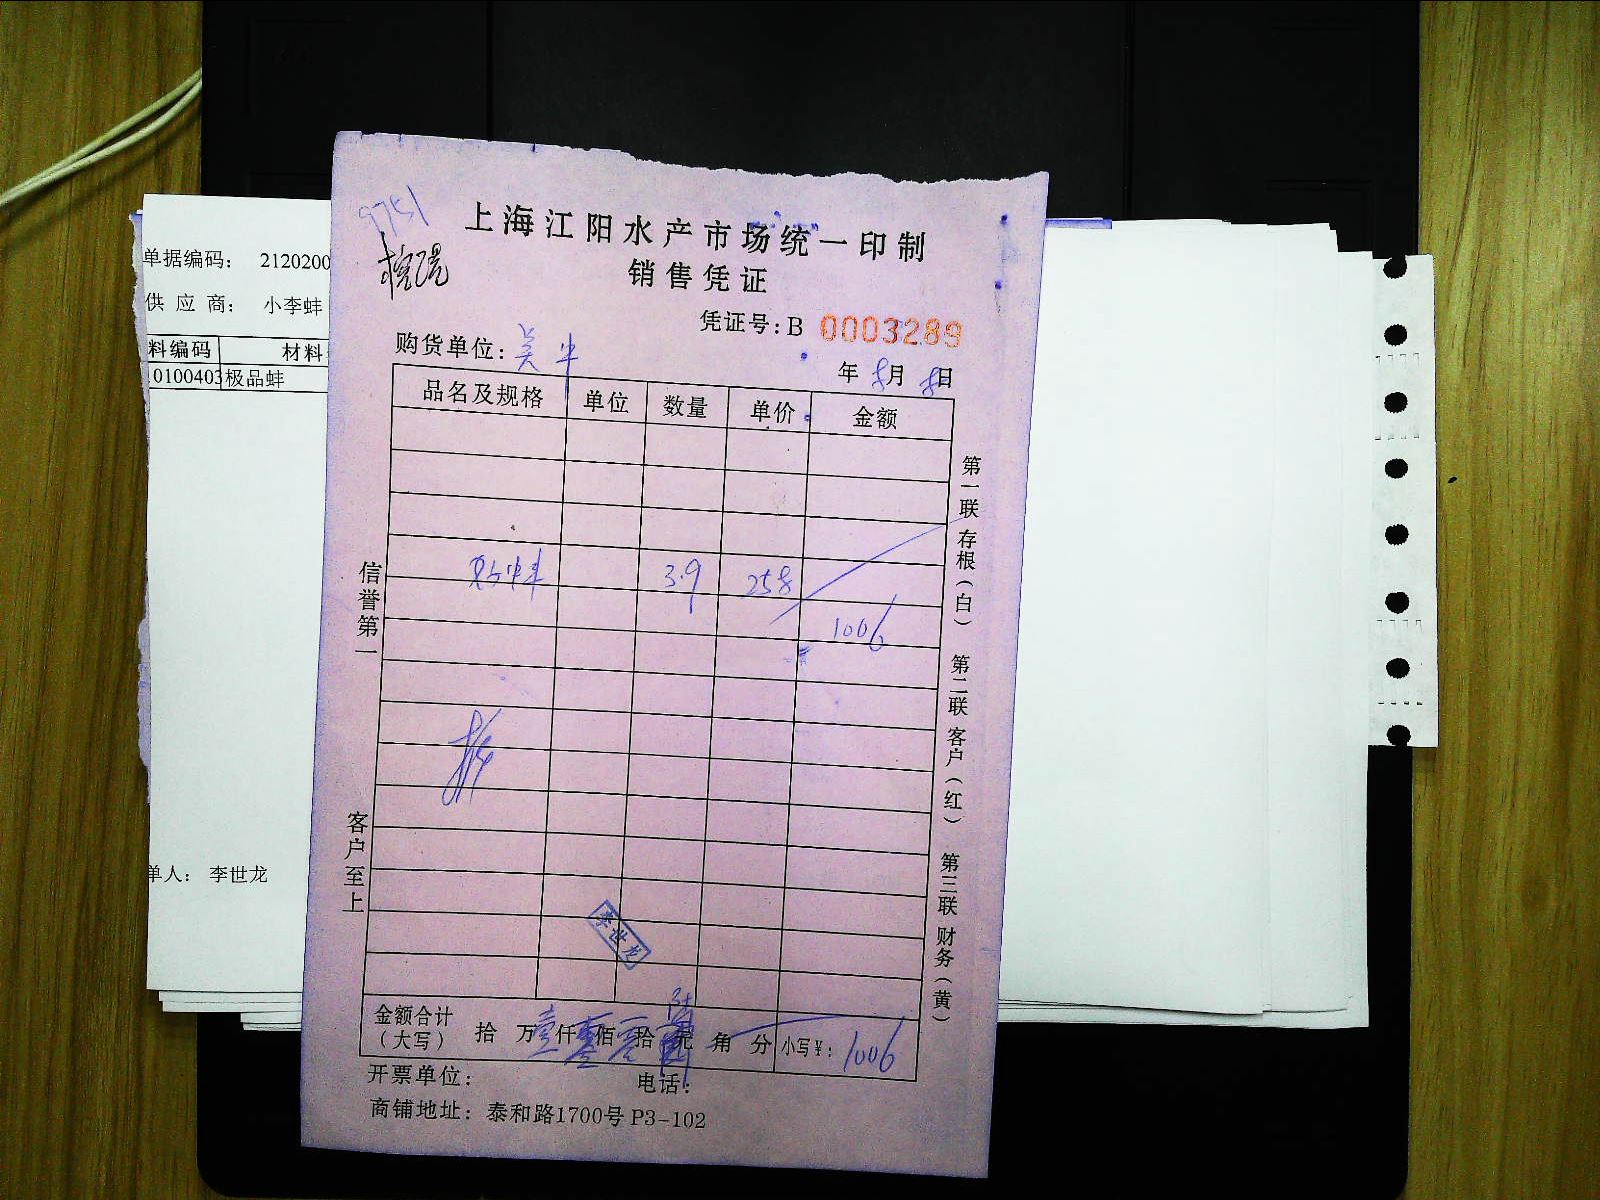 上海江阳水产市场统一印制
销售凭证
9751
凭证号:B 0003289
购货单位:美
年 8月 8日
品名及规格 单位 数量 单价 金额
3.9 258
1006
李世龙
金额合计(大写) 拾 万壹仟零佰零拾陆元 角 分 小写¥: 1006
开票单位: 电话:
商铺地址: 泰和路1700号 P3-102
信誉第一
客户至上
第一联 存根(白) 第二联 客户(红) 第三联 财务(黄)
单据编码: 2120200
供 应 商: 小李蚌
料编码 材料
10100403 极品蚌
单人: 李世龙